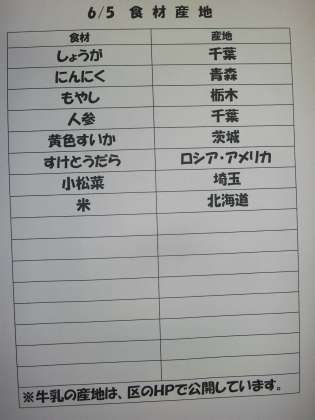 6/5 食材産地
食材 産地
しょうが 千葉
にんにく 青森
もやし 栃木
人参 千葉
黄色すいか 茨城
すけとうだら ロシア・アメリカ
小松菜 埼玉
米 北海道
※牛乳の産地は、区のHPで公開しています。